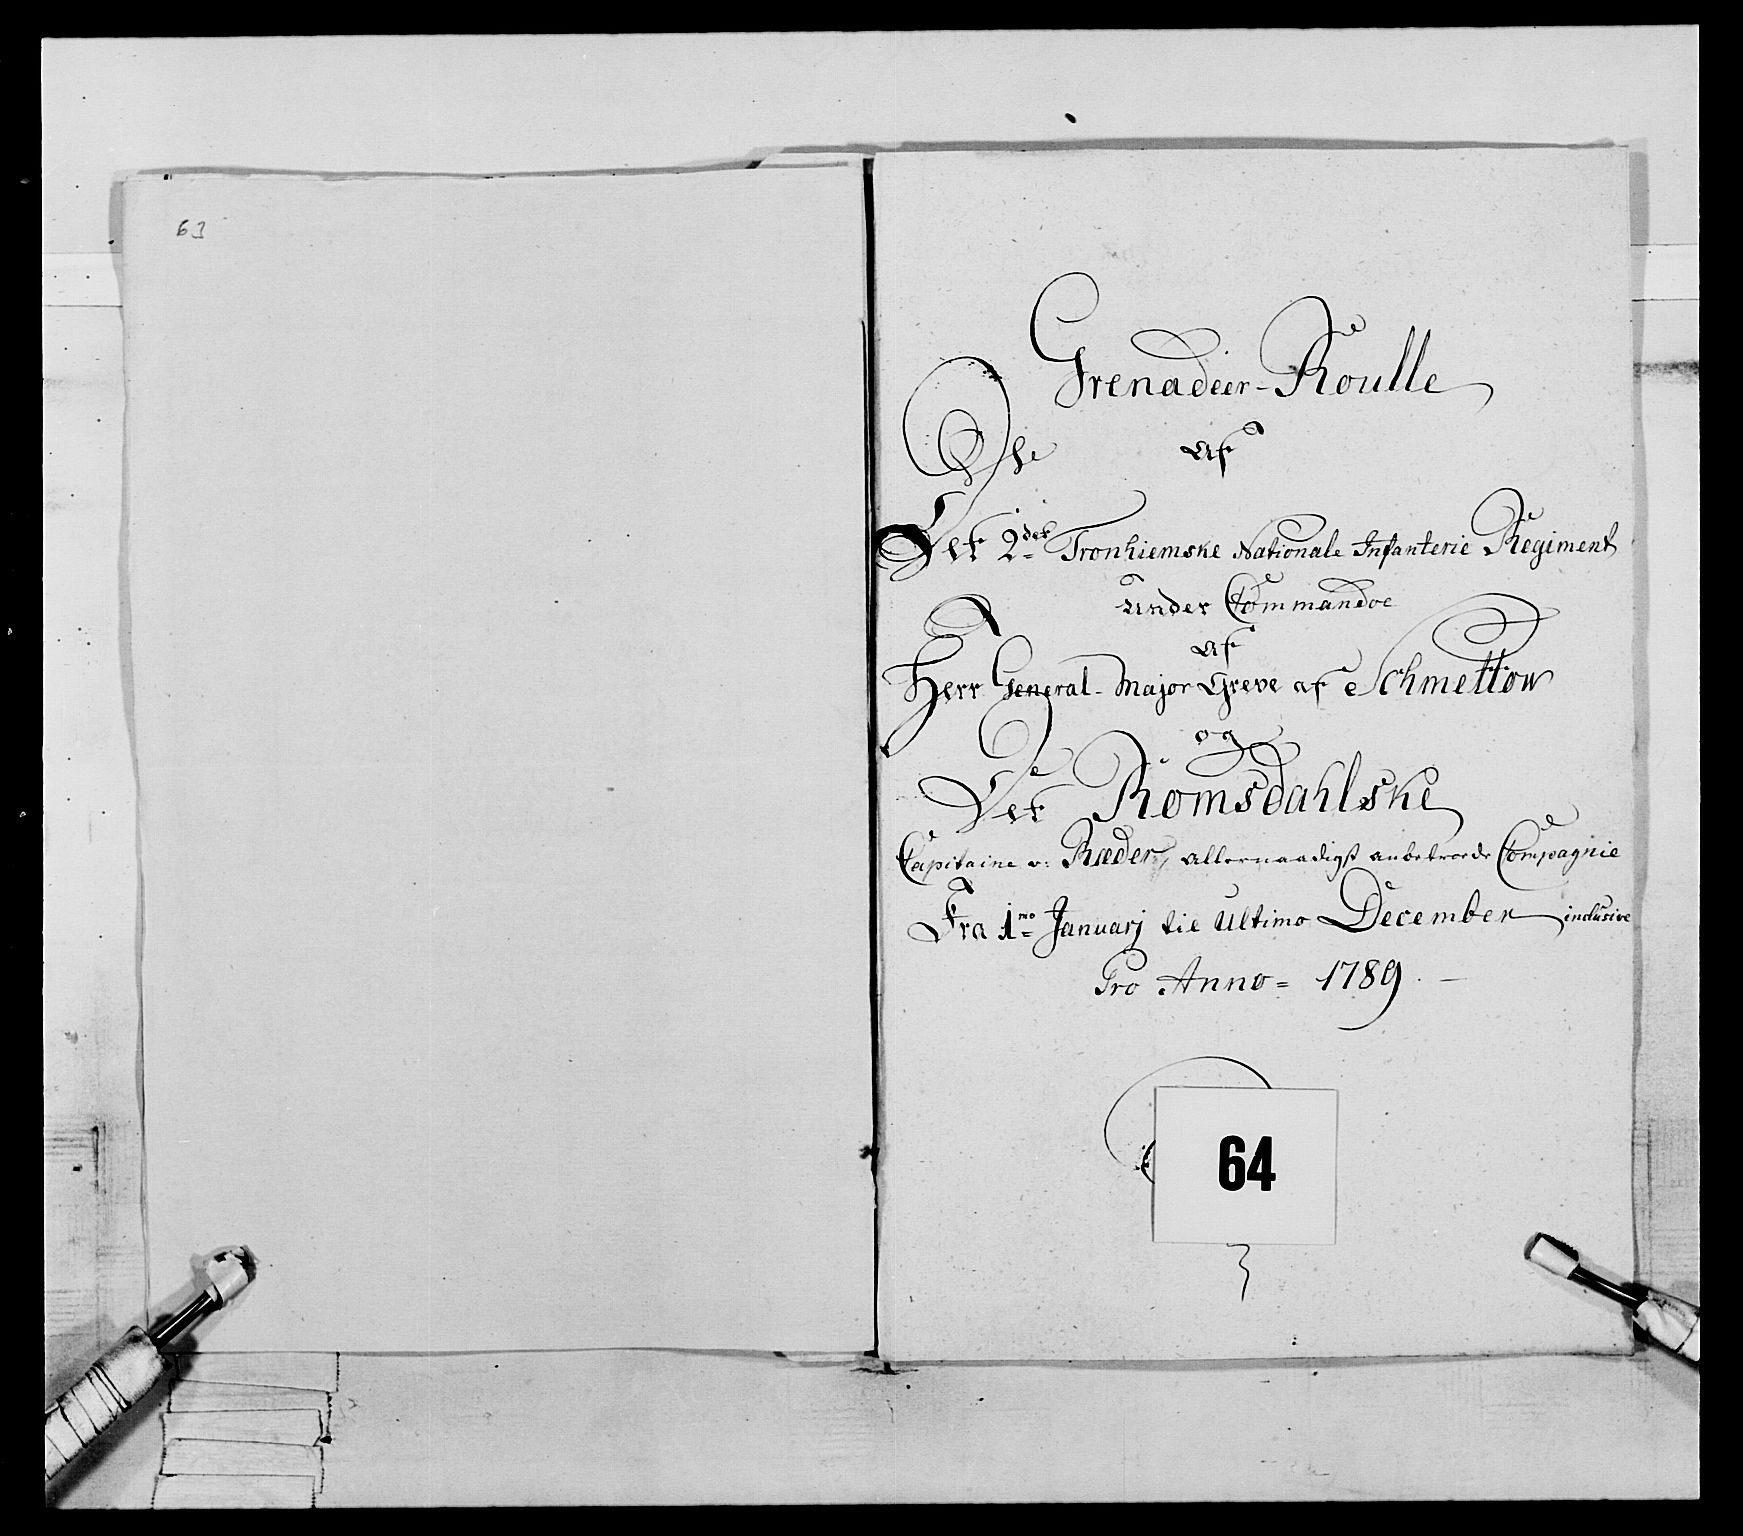 63
Grenadeer-Roulle
Af
Det 2det Tronhiemske Nationale Infanterie Regiment
under Commandoe
af
Herr General-Major Greve af Schmettow
og
Det Romsdahlske
Capitaine v: Ræder, allernaadigst anbetroede Compagnie
Fra 1mo Januarj til Ultimo December inclusive
Pro Anno = 1789. —
64